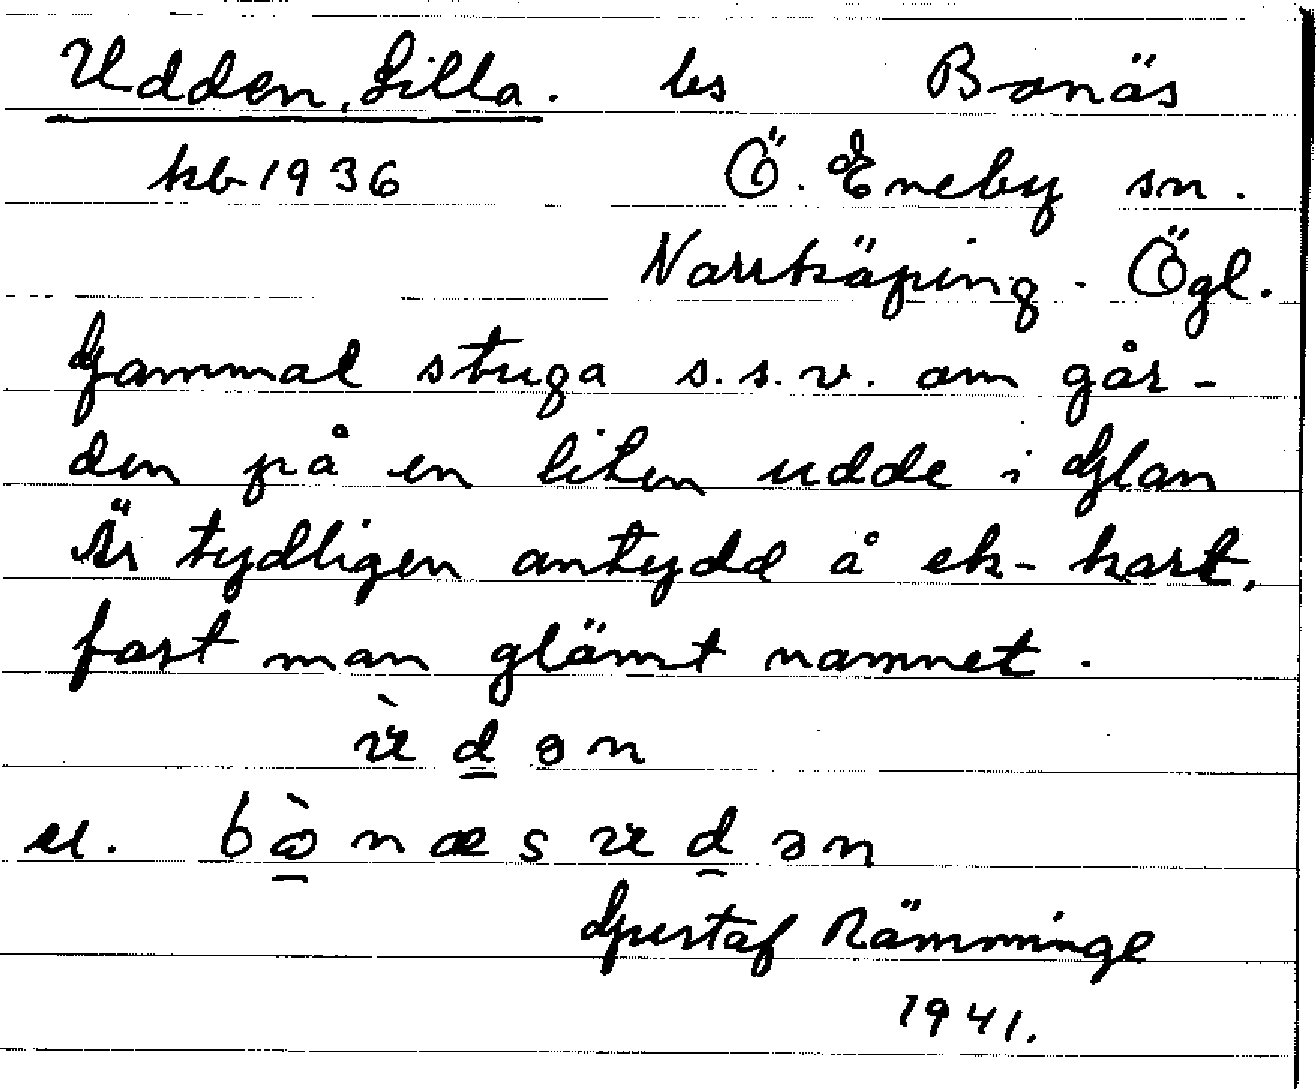 Udden, Lilla. ls Bonäs
kb 1936 Ö. Eneby sn.
Norrköping. Ögl.
Gammal stuga s.s.v. om går-
den på en liten udde i Glan
Är tydligen antydd å ek-kart,
fast man glömt namnet.
ù d ə n
el. bò n æ s u d ə n
Gustaf Rämminge
1941.